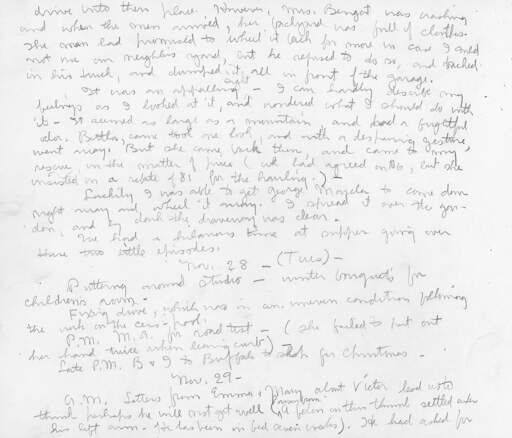 drive into their place. However, Mrs. Bengot was washing
and when the men arrived, her backyard was full of clothes.
The man had promised to wheel it back for more in case I could
not use my neighbors yard, but he refused to do so, and backed
in his truck, and dumped it all in front of the garage.
It was an appalling sight - I can hardly describe my
feelings as I looked at it, and wondered what I should do with
it - It seemed as large as a mountain, and had a frightful
odor. Betty came took one look, and with a despairing gesture,
went away. But she came back then, and came to my
rescue, in the matter of price (we had agreed on $6, but she
insisted on a rebate of $1 for the hauling.)
Luckily I was able to get George to come down
right away and wheel it away. I spread it over the gar-
den, and by dark the driveway was clear.
We had a hilarious time at supper going over
these two little episodes.
Nov. 28 - (Tues) -
Puttering around studio - winter bouquets for
children's room -
Fixing drive, which was in an uneven condition following
the work on the cess-pool.
P.M. M.A. for road test - (she failed to put out
her hand twice when leaving curb) -
Late P.M. B & I to Buffalo to shop for Christmas -
Nov. 29 -
A.M. Letters from Emma & Mary about Victor lead us to
think perhaps he will not get well (A felon on his thumb settled under
his left arm. He has been in bed weeks). He had asked for